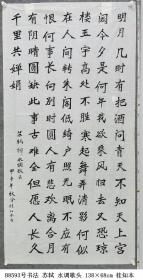 明月几时有把酒问青天不知天上宫
阙今夕是何年我欲乘风归去又恐琼
楼玉宇高处不胜寒起舞弄清影何似
在人间转朱阁低绮户照无眠不应有
恨何事长向别时圆人有悲欢离合月
有阴晴圆缺此事古难全但愿人长久
千里共婵娟
苏轼词水调歌头
B8593号书法 苏轼 水调歌头 138×68cm 桂如本